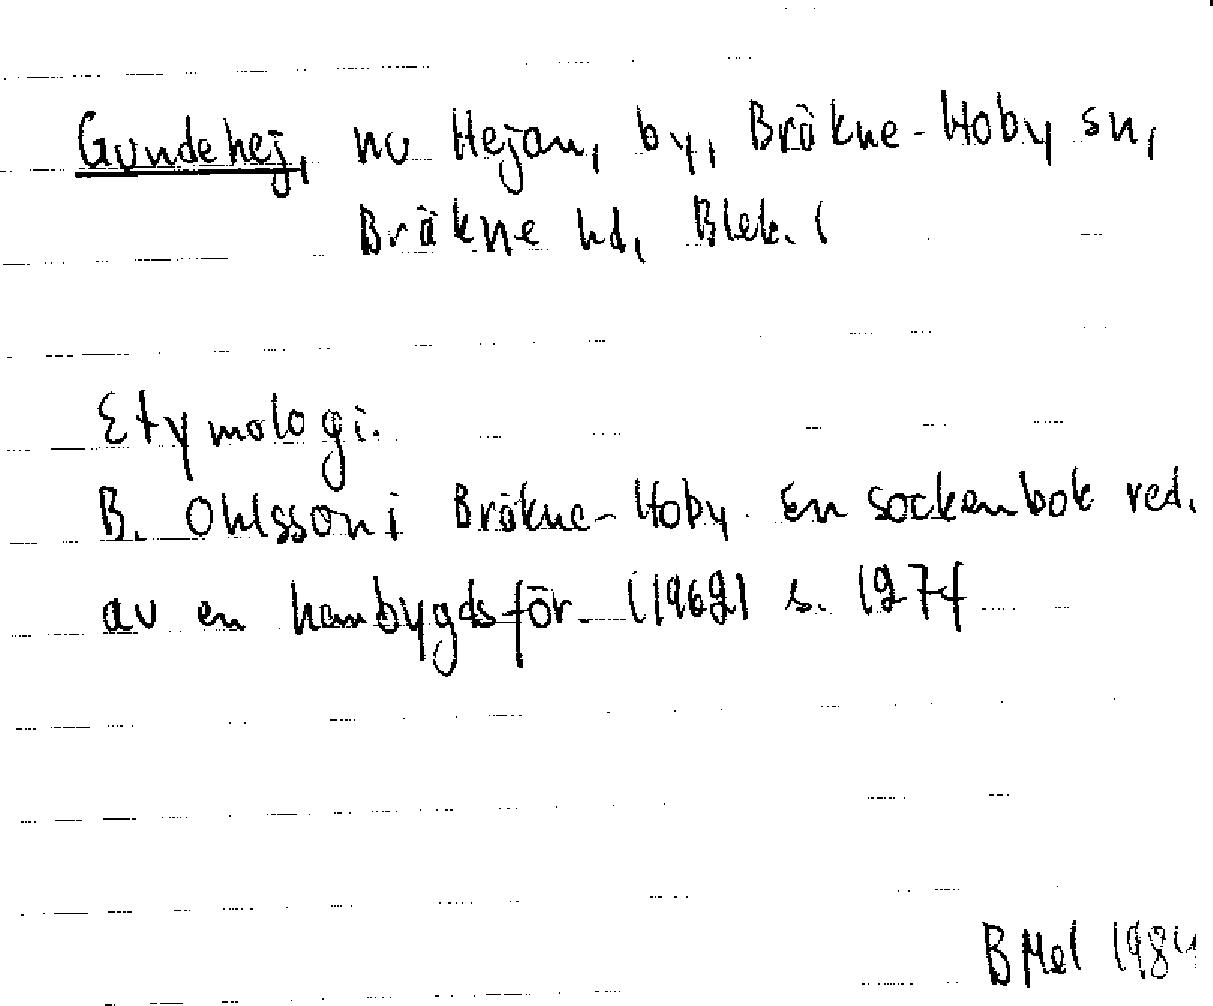 Gundehej, nu Hejan, by, Bräkne-Hoby sn,
Bräkne hd, Blek. l
Etymologi.
B. Ohlsson i Bräkne-Hoby. En sockenbok red.
av en hembygdsför. (1962) s. 127f
B Mel 1984